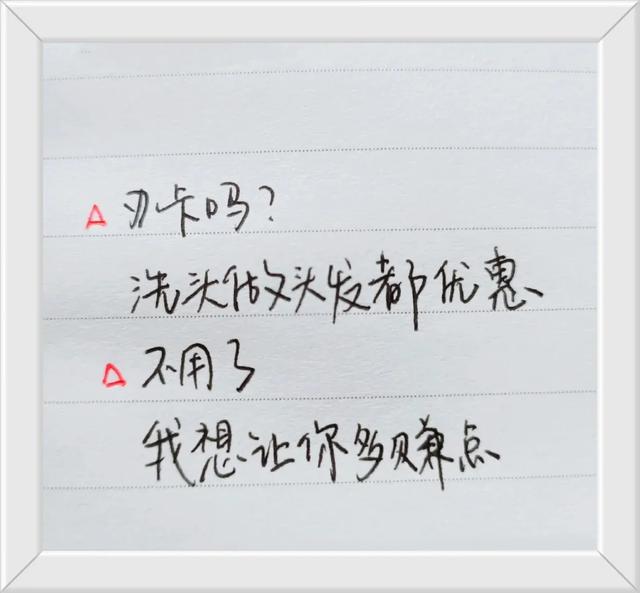 △ 办卡吗?
洗头做头发都优惠、
△ 不用了
我想让你多赚点